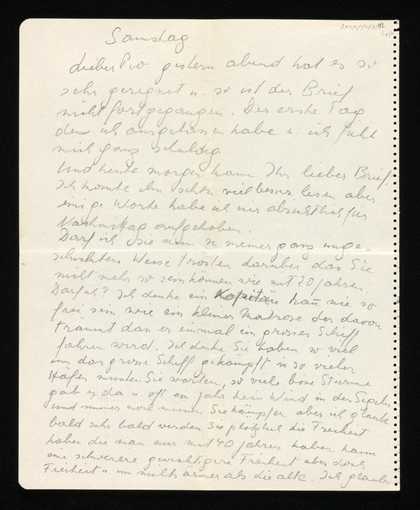 Samstag
Lieber Pio gestern abend hat es so
sehr geregnet u. so ist der Brief
nicht fortgegangen. Der erste Tag
den ich ausgelassen habe u. ich fühl
mich ganz schuldig
Und heute morgen kam Ihr lieber Brief.
Ich konnte ihn schon viel besser lesen aber
einige Worte habe ich mir absichtlich für
Nachmittag aufgehoben.
Darf ich Sie nun in meiner ganz unge-
schickten Weise trösten darüber das Sie
nicht mehr so sein können wie mit 20 Jahren.
Darf ich? Ich denke ein Kapitän kann nie so
frei sein wie ein kleiner Matrose der davon
träumt dan er einmal ein grosses Schiff
fahren wird. Ich denke Sie haben so viel
um das grosse Schiff gekämpft in so vielen
Häfen mussten Sie warten, so viele böse Stürme
gab es da u. oft ein Jahr kein Wind in den Segeln
und immer wieder mussten Sie kämpfen aber ich glaube
bald sehr bald werden Sie plötzlich die Freiheit
haben die man nur mit 40 Jahren haben kann
eine schwerere gewichtigere Freiheit aber doch
Freiheit u. um nichts ärmer als die alte. Ich glaube